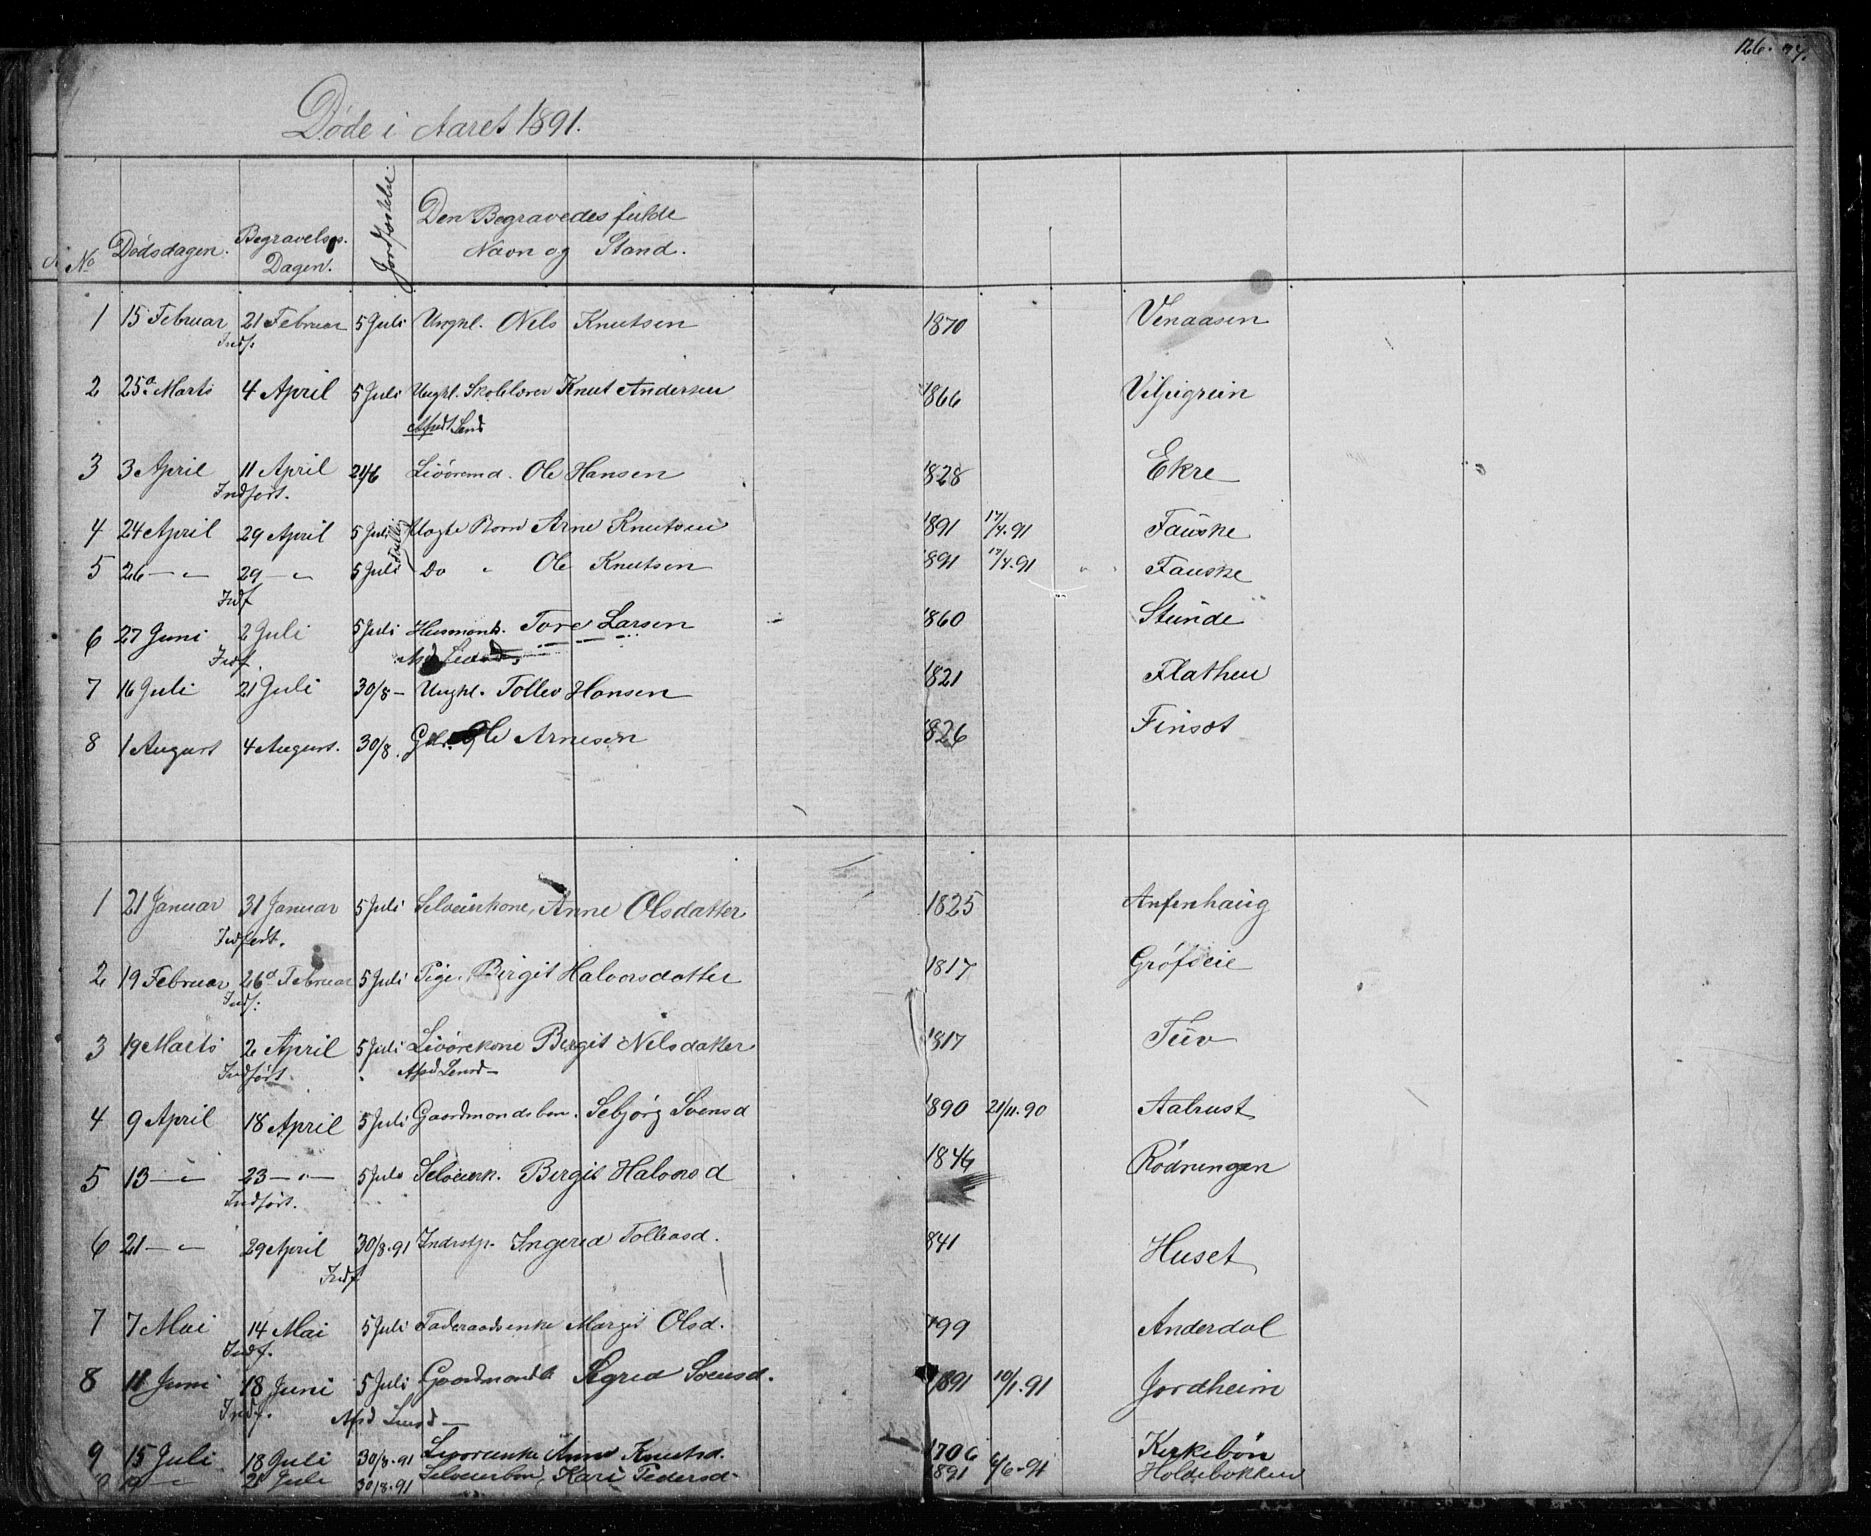 126.
Døde i Aaret 1891.
No Dødsdagen. Begravelses Dagen. Jordfæstelse Den Begravedes fulde Navn og Stand.
1 15 Februar 21 Februar 5 Juli Ungkl. Nels Knutsen 1870 Venaasen
Indf.
2 25de Marts 4 April 5 Juli Ungkl. Skolelærer Knut Andersen 1866
3 3 April 11 April 21/6 Livøremd. Ole Hansen 1828 Ekre
Indført.
4 24 April 29 April 5 Juli Uægte Barn Arne Knutsen 1891 17/4.91 Fauske
5 26 — " 29 — " 5 Juli Do " Ole Knutsen 1891 17/4.91 Fauske
Indf
6 27 Juni 2 Juli 5 Juli Husmand. Tore Larsen 1860 Stunde
Indf.
7 16 Juli 21 Juli 30/8 — Ungkl. Tollev Hansen 1821 Flathen
8 1 August 4 August. 30/8. Ole Arnesen 1826 Finset
1 21 Januar 31 Januar 5 Juli Selveierkone, Anne Olsdatter 1825
Indført.
2 19 Februar 26de Februar 5 Juli Pige. Birgit Halvorsdatter 1817 Grøfteie
Indf.
3 19 Marts 2 April 5 Juli Livørekone Bergit Nelsdatter 1817 Tuv
Indført
4 9 April 18 April 5 Juli Gaardmandsbon. Sebjørg Svensd 1890 21/11.90 Aalrust
5 13 — " 23 — " — 5 Juli Selveierk. Bergit Halvorsd 1846 Rødnungen
Indført.
6 21 — " 29 April 30/8.91 Inderstp. Ingerid Tolleivsd. 841 Huset
Indf
7 7 Mai 14 Mai 5 Juli Føderaadsenke Margit Olsd. 799 Anderdal
Indf.
8 11 Juni 18 Juni 5 Juli Gaardmandsb Sigrid Svensd. 1891 10/1.91 Jordheim
Indf.
9 15 Juli 18 Juli 30/8.91 Livøreenke Anne Knutsd. 1706 Kirkebøn
19 — " 21 Juli 30/8.91 Selveierbon, Kari Pedersd. 1891 6/6-91 Holdebakken